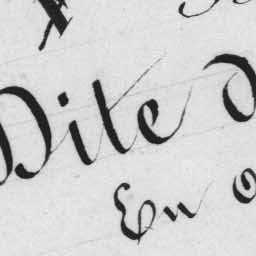 Dite d
En o